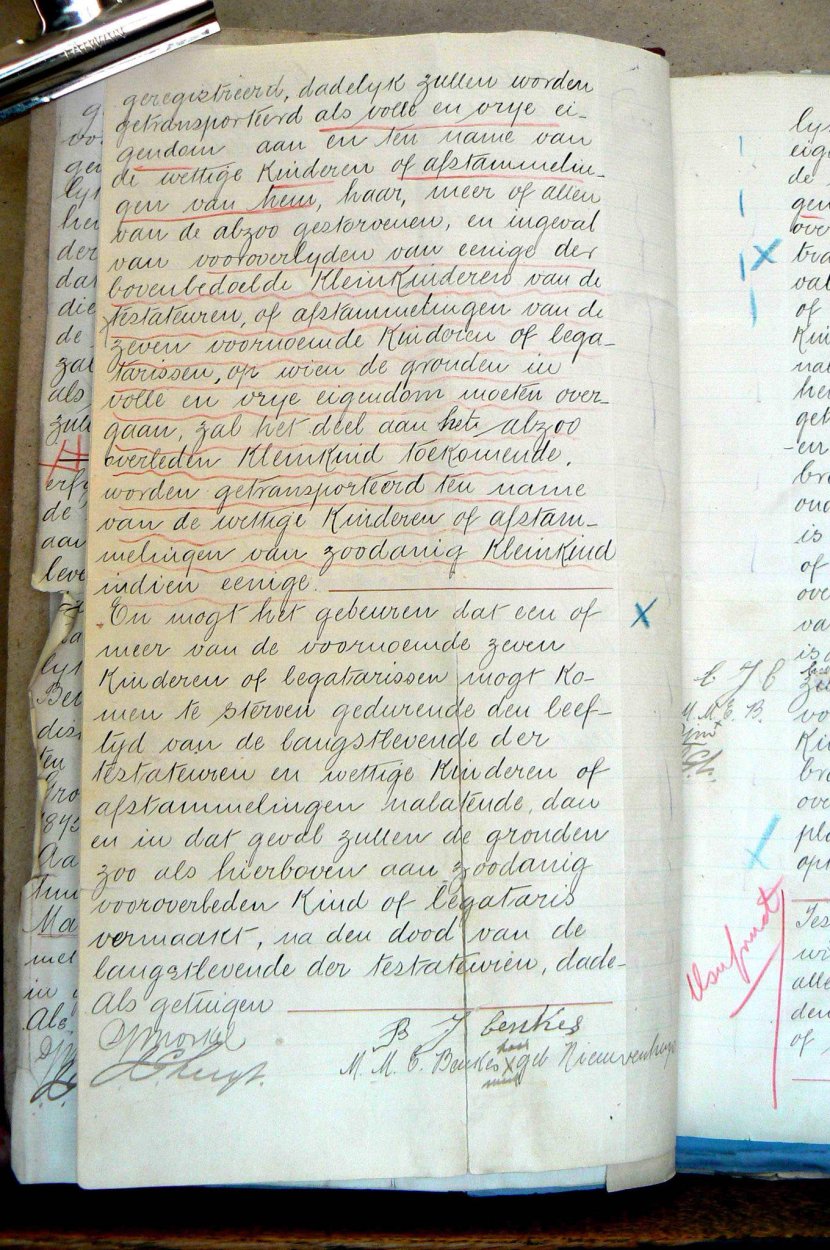 geregistreerd, dadelyk zullen worden
getransporteerd als volle en vrye ei-
gendom aan en ten name van
de wettige Kinderen of afstammelin-
gen van hem, haar, meer of allen
van de alzoo gestorvenen, en ingeval
van vooroverlyden van eenige der
bovenbedoelde Kleinkinderen van de
testateuren, of afstammelingen van de
zeven voornoemde Kinderen of lega-
tarissen, op wien de gronden in
volle en vrye eigendom moeten over-
gaan, zal het deel aan het alzoo
overleden Kleinkind toekomende,
worden getransporteerd ten name
van de wettige Kinderen of afstam-
melingen van zoodanig Kleinkind
indien eenige.
En mogt het gebeuren dat een of
meer van de voornoemde zeven
Kinderen of legatarissen mogt Ko-
men te sterven gedurende den leef-
tyd van de langstlevende der
testateuren en wettige Kinderen of
afstammelingen nalatende, dan
en in dat geval zullen de gronden
zoo als hierboven aan zoodanig
vooroverleden Kind of legataris
vermaakt, na den dood van de
langstlevende der testateuren, dade-
Als getuigen
B J Beukes
M. M. E. Beukes X geb Nieuwenhuys
haar
merk
g
ge
lyt
hen
der
dat
die
de
zal
als
zull
erfg
de
aan
leve
lyt
dist
ten
1895
Aa
Ma
met
in
Als
lys
eige
de
gen
over
tra
val
of
Kin
nal
hen
get
-en
bre
ond
is
of
ove
va
is
B J B
M. M. E. B.
vo
Kin
bre
ove
pla
op
Usufruct
Tes
wi
alle
den
of